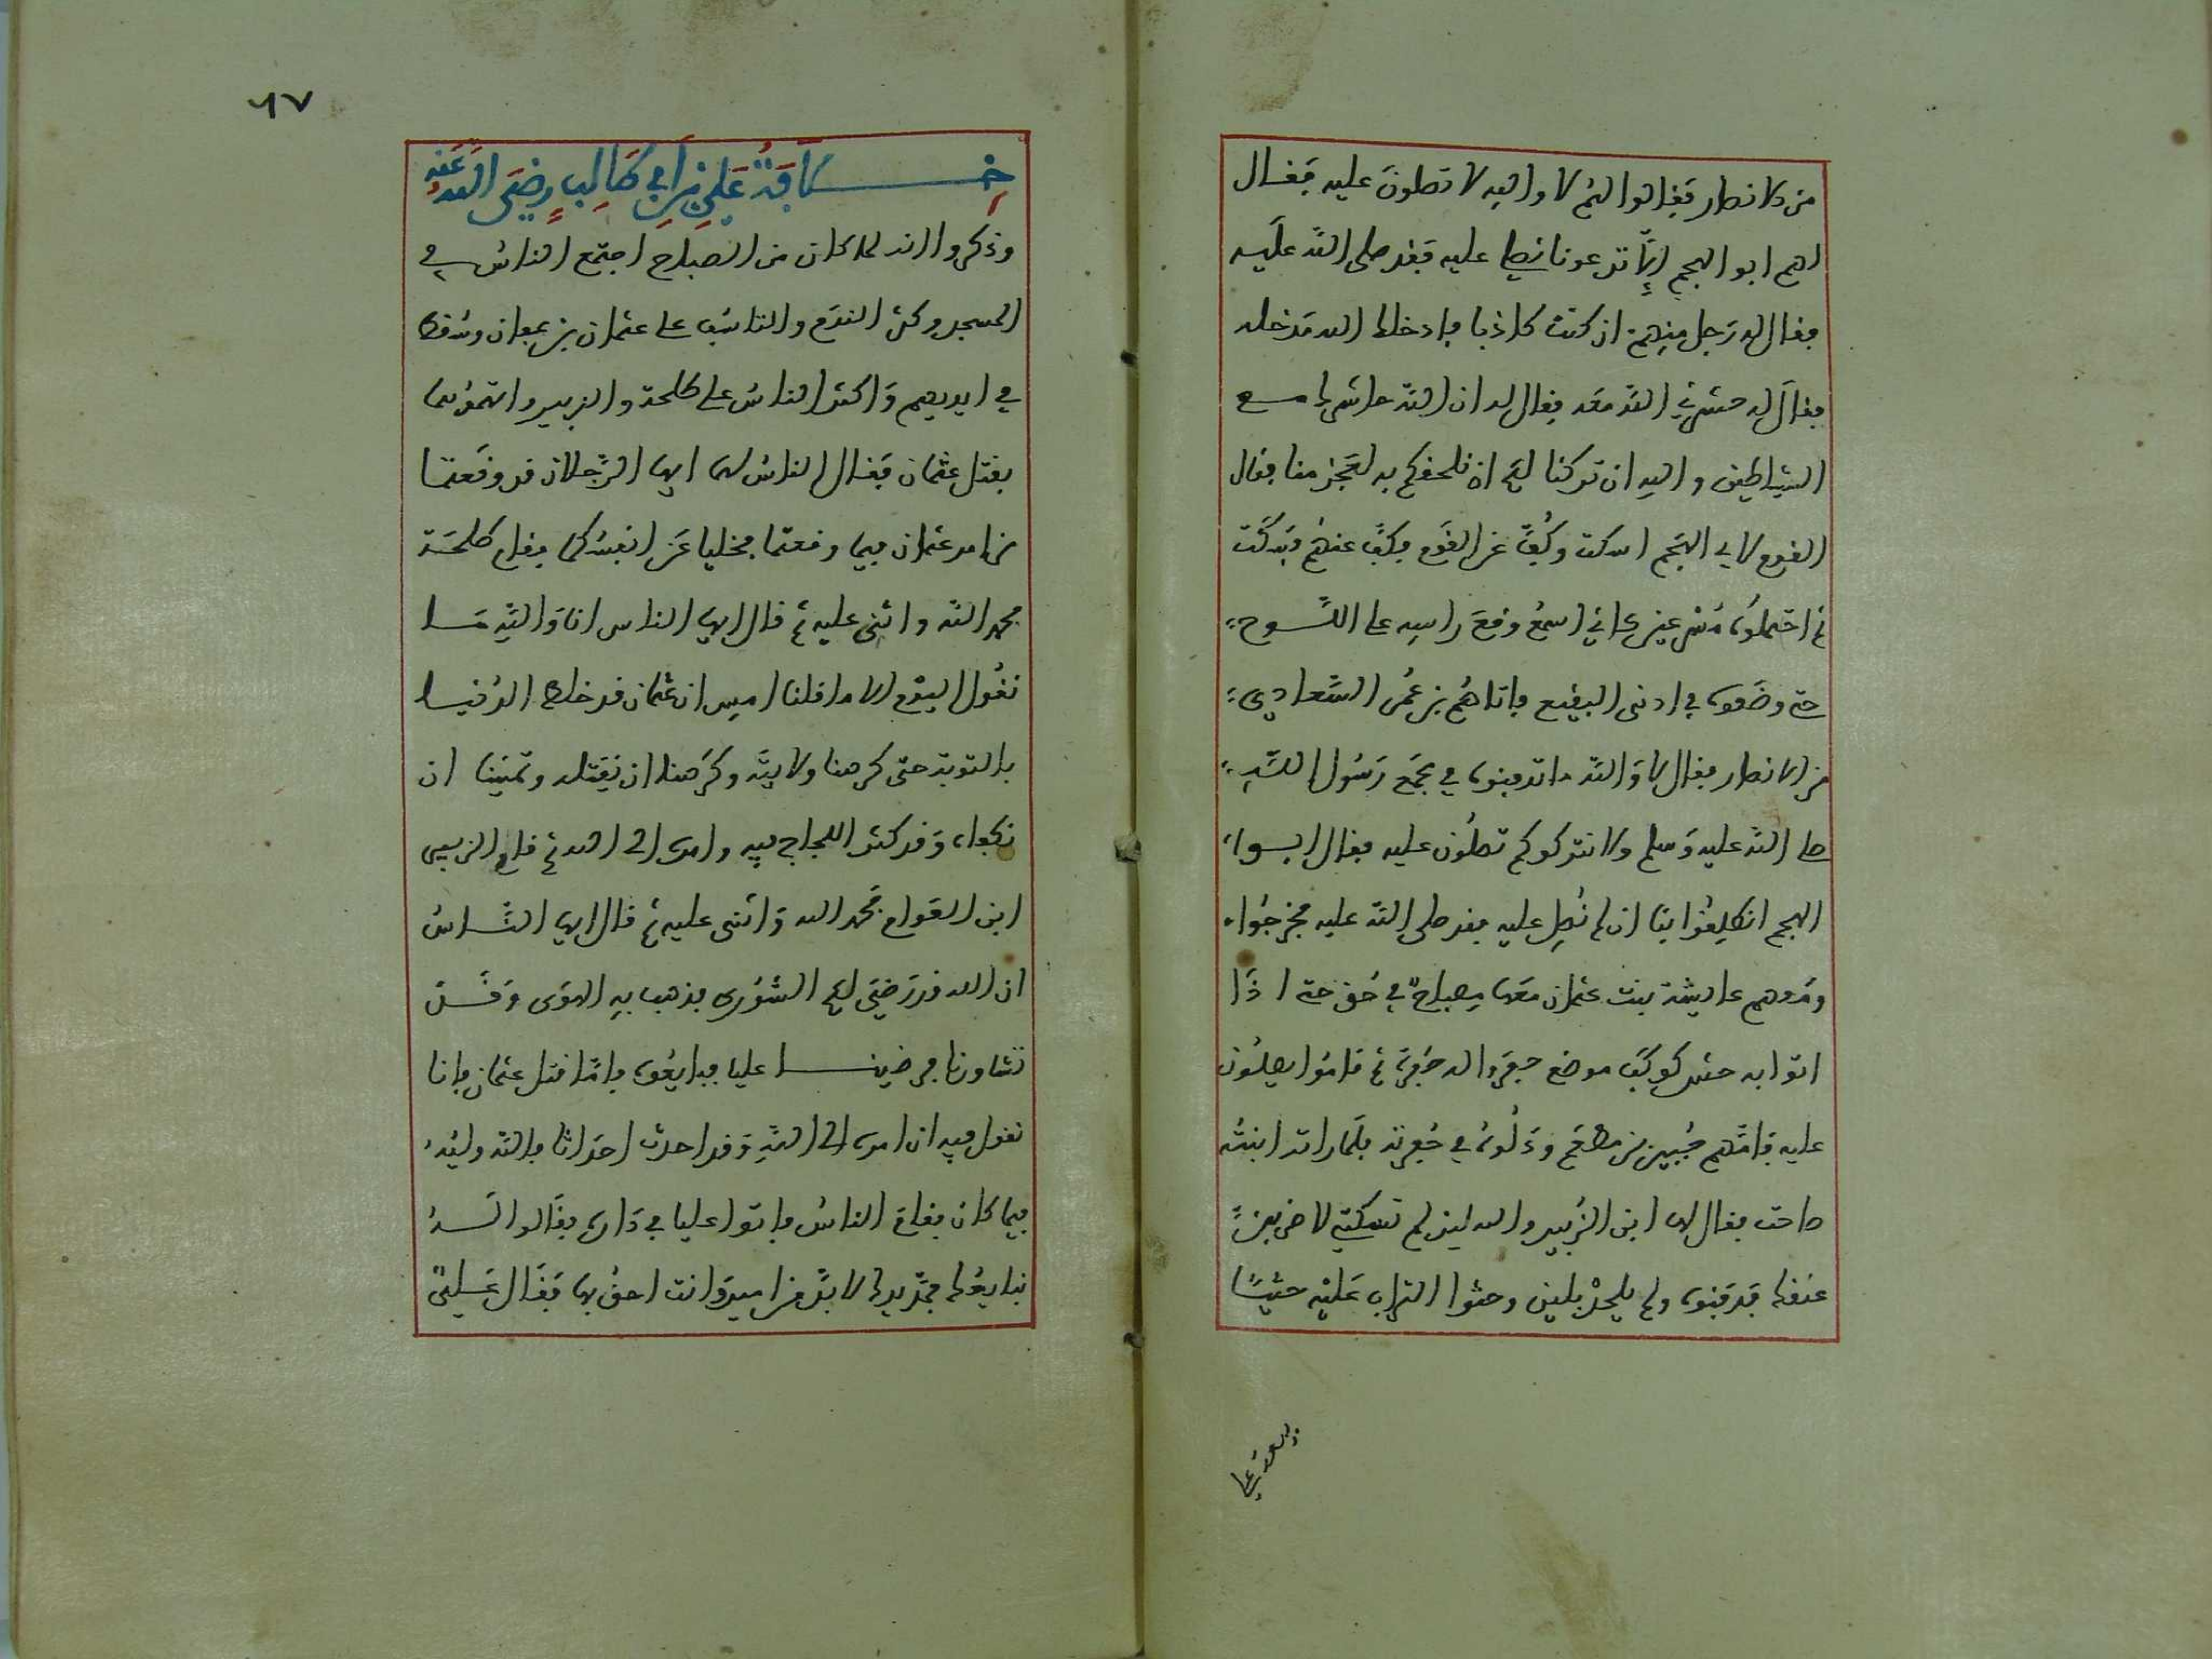 من الانصار فقالوا لهم لا والله لا تصلون عليه فقال
لهم ابو الجهم الا تدعونا نصلي عليه فقد صلى الله عليه
فقال له رجل منهم ان كنت كاذبا فادخلك الله مدخله
فقال له حشرني الله معه فقال له ان الله حاشرك مع
الشياطين والله ان تركنا لكم ان نلحقكم به لعجز منا فقال
القوم لابي الجهم اسكت وكف عن القوم فكف عنهم فسكت
ثم احتملوه مسرعين كاني اسمع وقع راسه على اللوح
حتى وضعوه في ادنى البقيع فاتاهم بن عمر الساعدي
من الانصار فقال لا والله ما تدفنوه في بقيع رسول الله
صلى الله عليه وسلم ولا نترككم تصلون عليه فقال ابوا
الجهم انطلقوا بنا ان لم نصل عليه فقد صلى الله عليه فخرجوا
ومعهم عائيشة بنت عثمان معها مصباح في حق حتى اذا
اتوا به حش كوكب موضع حفروا له حفرة ثم قاموا يصلون
عليه فامهم جبير بن مطعم ودلوه في حفرته فلما راته ابنته
صاحت فقال لها ابن الزبير والله لين لم تسكتي لاضربن
عنقك فدفنوه ولم يلحد بلبن وحثوا التراب عليه حثيا
خلافة علي
٦٧
خلافة علي بن ابي طالب رضي الله عنه
وذكروا انه لما كان من الصباح اجتمع الناس في
المسجد وكثر الندم والتاسف على عثمان بن عفان وسقط
في ايديهم واكثر الناس على طلحة والزبير واتهموهما
بقتل عثمان فقال الناس لهما ايها الرجلان قد وقعتما
من امر عثمان فيما وقعتما فخليا عن انفسكما فقام طلحة
فحمد الله واثنى عليه ثم قال ايها الناس انا والله ما
نقول اليوم الا ما قلنا امس ان عثمان قد خلط الدنيا
بالتوبة حتى كرهنا ولايته وكرهنا ان نقتله وتمنينا ان
نكفاه وقد كثر اللجاج فيه وامره الى الله ثم قام الزبير
ابن العوام فحمد الله واثنى عليه ثم قال ايها الناس
ان الله قد رضي لكم الشورى فذهب به الهوى وقد
تشاورنا فرضينا عليا فبايعوه فاما قتل عثمان فانا
نقول فيه ان امره الى الله وقد احدث احداثا والله وليه
فيما كان فقام الناس فاتوا عليا في داره فقالوا له
نبايعك فمد يدك لا بد من امير وانت احق بها فقال علي